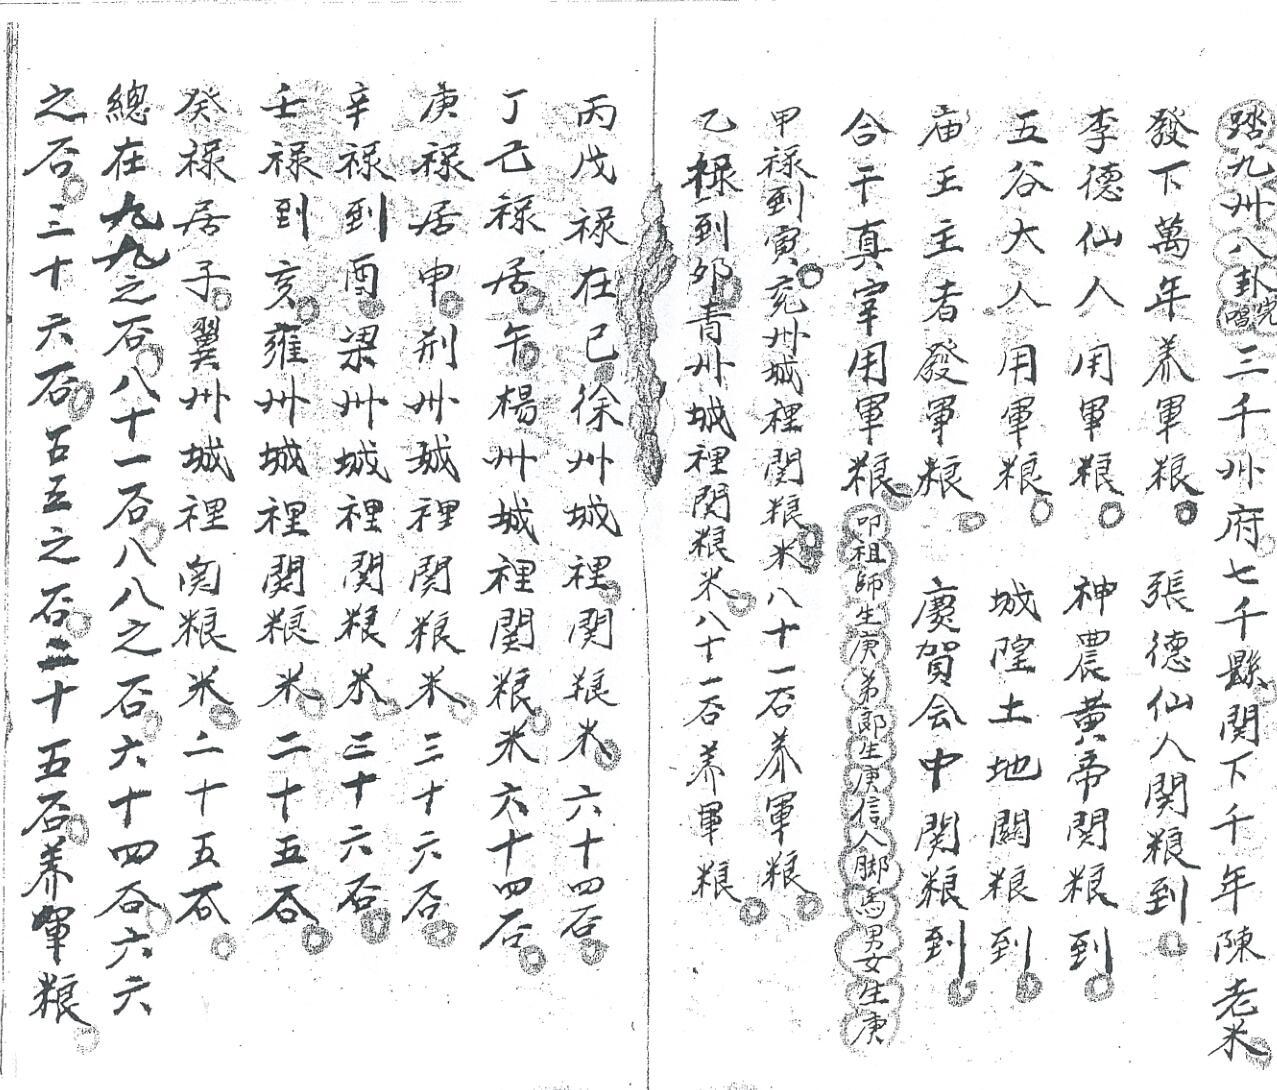 踏九州八卦咒唱三千州府七千縣関下千年陳老米
發下萬年养軍粮張德仙人関粮到
李德仙人用軍粮神農黄帝関粮到
五谷大人用軍粮城隍土地關粮到
庙王主者發軍粮慶賀会中関粮到
合干真宰用軍粮叩祖師生庚弟郎生庚信人脚馬男女生庚
甲禄到寅兖州城裡関粮米八十一石养軍粮
乙禄到卯青州城裡関粮米八十一石养軍粮
丙戊禄在巳徐州城裡関粮米六十四石
丁己禄居午楊州城裡関粮米六十四石
庚禄居申荆州城裡関粮米三十六石
辛禄到酉梁州城裡関粮米三十六石
壬禄到亥雍州城裡関粮米二十五石
癸禄居子翼州城裡関粮米二十五石
總在九九之石八十一石八八之石六十四石六六
之石三十六石五五之石二十五石养軍粮